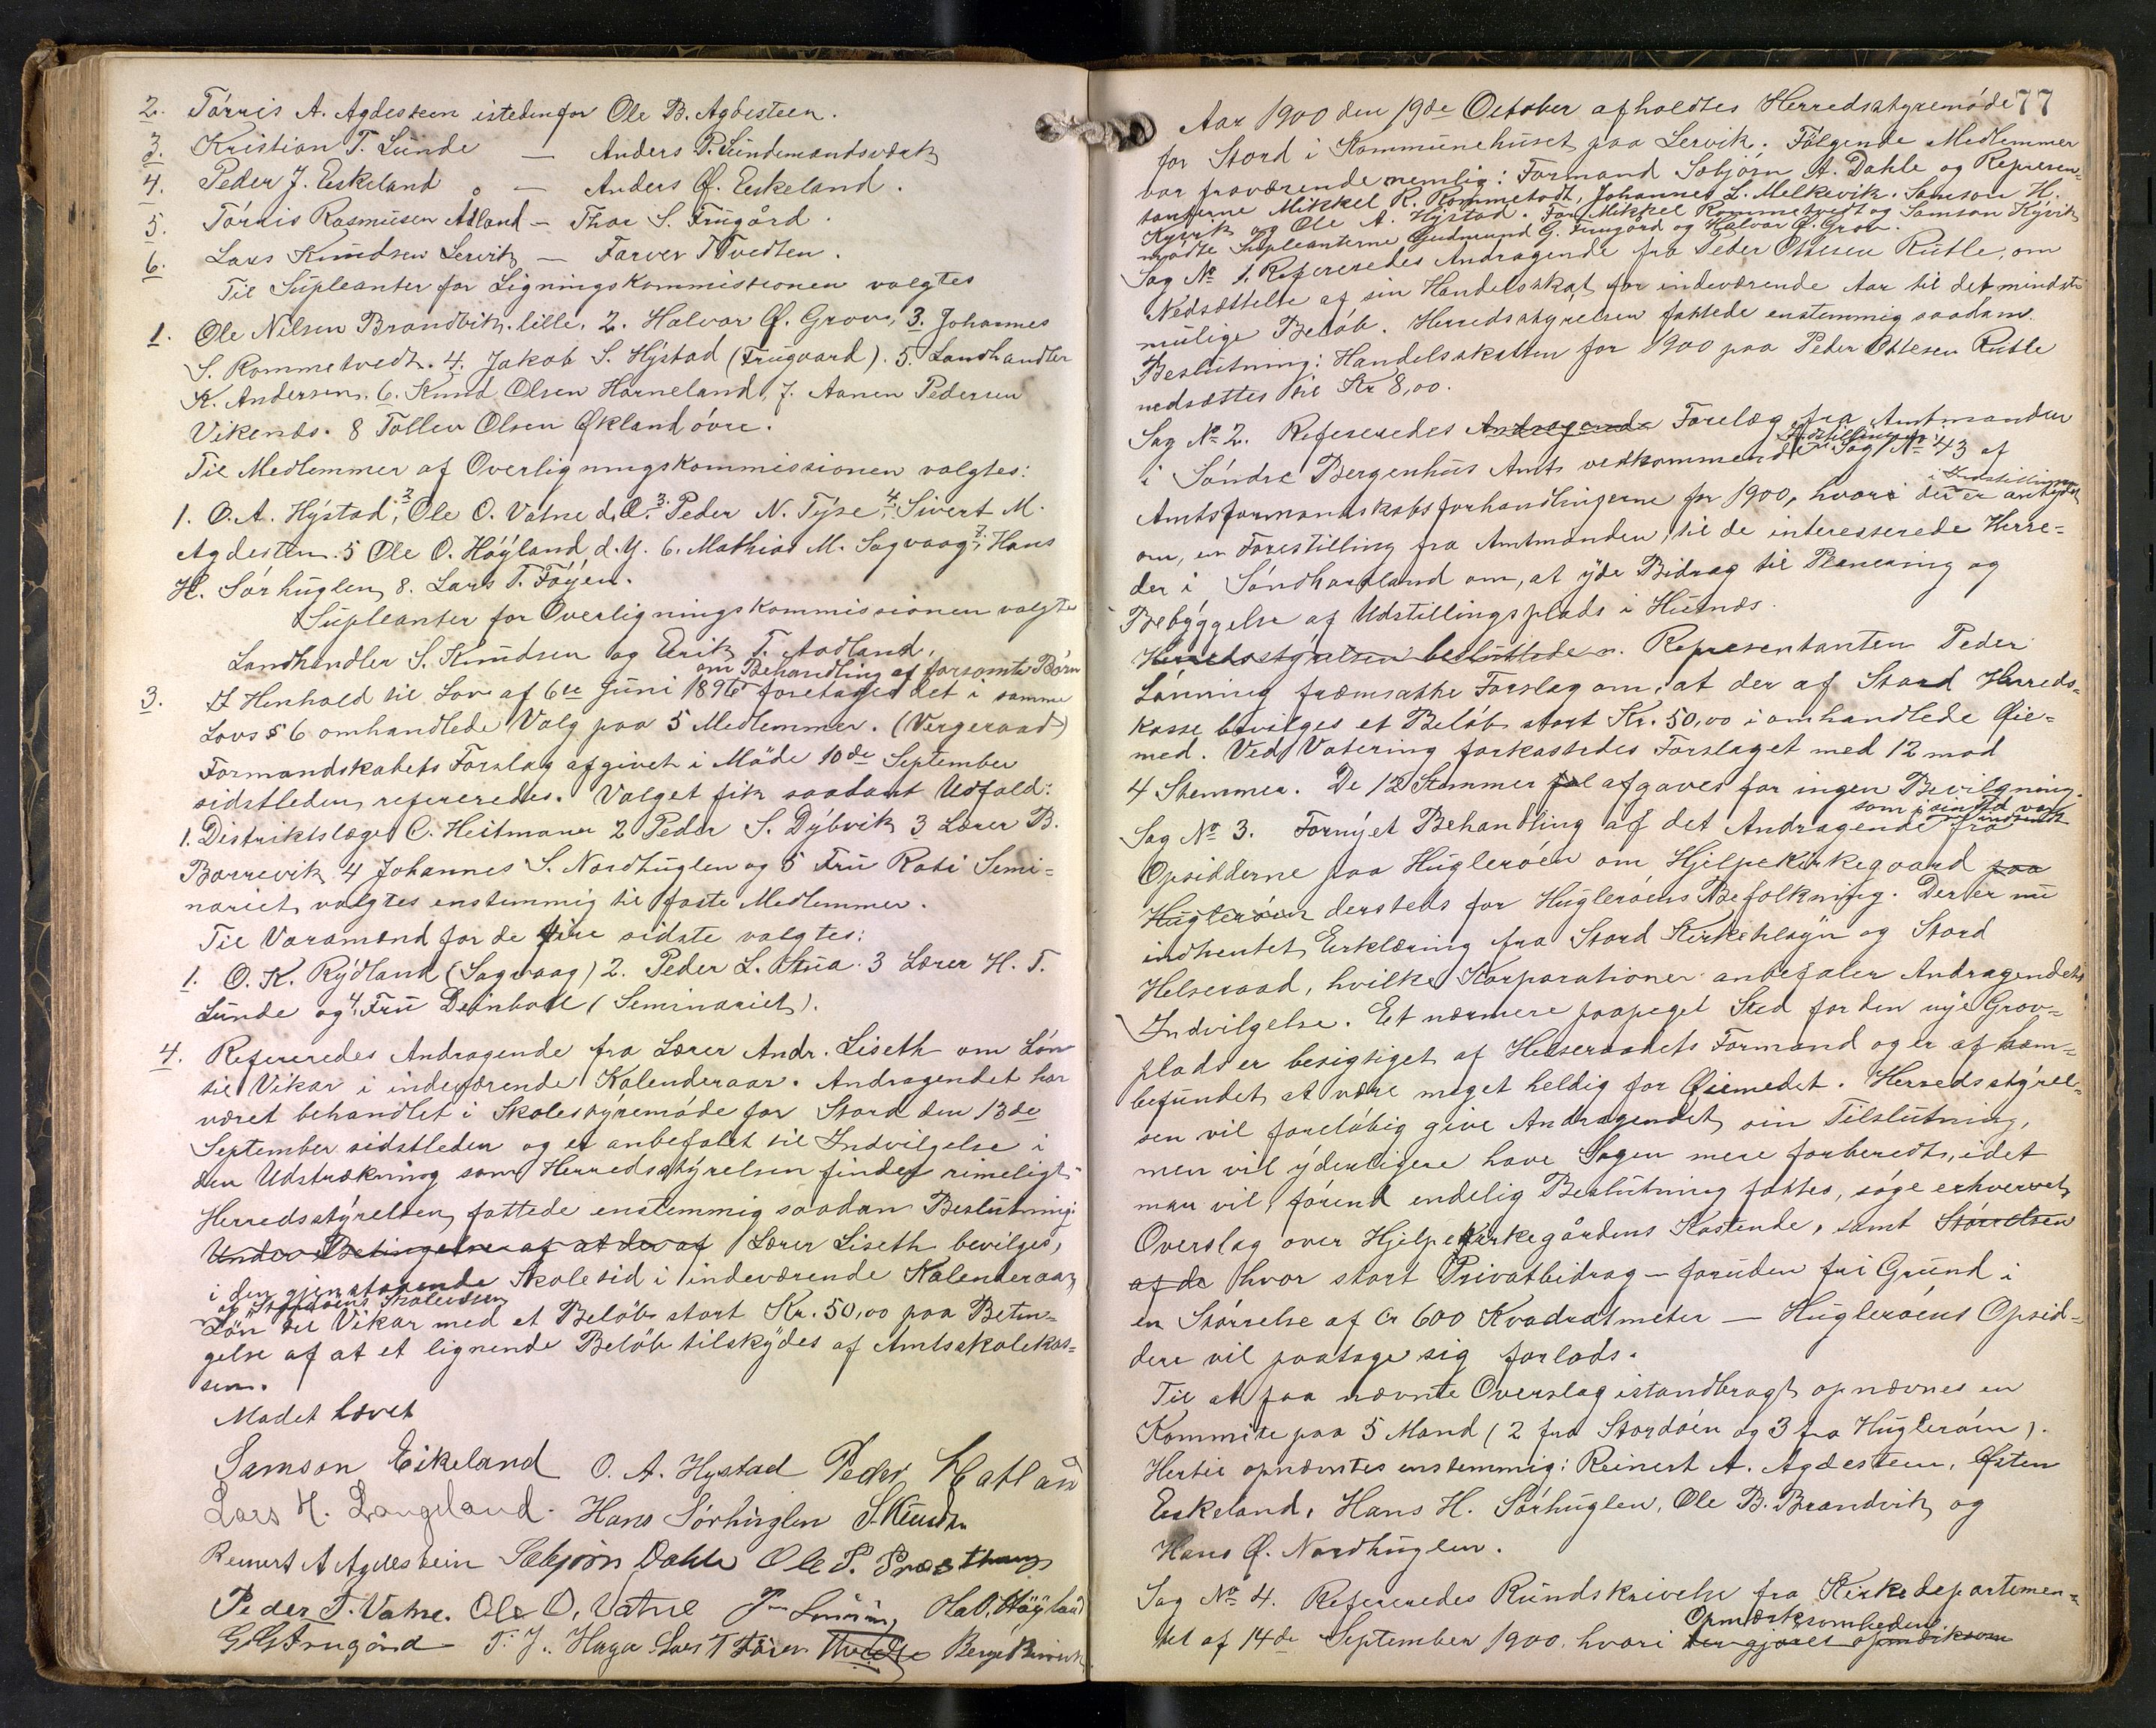 2. Tórris A. Agdesteen istedenfor Ole B. Agdesteen.
3. Kristian T. Lunde — Anders P. Lundemandsværk
4. Peder J. Eskeland — Anders Ø. Eskeland.
5. Tórris Rasmusen Adland — Thor S. Frugård.
6. Lars Knudsen Lervik — Farver T Tvedten.
Til Supleanter for Ligningskommissionen valgtes
1. Ole Nilsen Brandvik lille, 2. Halvor Ø. Grov, 3. Johannes
S. Rommetvedt. 4. Jakob S. Hýstad (Frugaard). 5. Landhandler
K. Andersen. 6. Knud Olsen Horneland, 7. Aanen Pedersen
Vikenæs. 8 Tollev Olsen Økland óvre.
Til Medlemmer af Overligningskommissionen valgtes:
1. O. A. Hýstad, 2 Ole O. Vatne d. Æ. 3. Peder N. Týse, 4. Sivert M.
Agdesten. 5 Ole O. Hóýland d. Y. 6. Mathias M. Sagvaag, 7. Hans
H. Sórhuglen, 8. Lars T. Fóýen.
Supleanter for Overligningskommissionen valgtes
Landhandler S. Knudsen og Eirik T. Aadland.
om Behandling af forsømte Børn
3. I Henhold til Lov af 6te Juni 1896 foretoges det i samme
Lovs § 6 omhandlede Valg paa 5 Medlemmer. (Vergeraad)
Formandskabets Forslag afgivet i Móde 10de September
sidstleden refereredes. Valget fik saadant Udfald:
1. Distriktslæge C. Heitmann 2 Peder S. Dýbvik 3 Lærer B.
Borrevik 4 Johannes S. Nordhuglen og 5 Fru Rabi Semi=
nariet valgtes enstemmig til faste Medlemmer.
Til Varamænd for de fire sidste valgtes:
1. O. K. Rýdland (Sagvaag) 2. Peder L. Stua. 3 Lærer H. T.
Lunde og 4. Fru Deinboll (Seminariet).
4. Refereredes Andragende fra Lærer Andr. Liseth om Lón
til Vikar i indeværende Kalenderaar. Andragendet har
været behandlet i Skolestýremóde for Stord den 13de
September sidstleden og er anbefalet til Indvilgelse i
den Udstrækning som Herredsstýrelsen finder rimeligt.
Herredsstýrelsen fattede enstemmig saadan Beslutning:
Under Betingelse af at der af Lærer Liseth bevilges,
i den gjenstaaende Skoletid i indeværende Kalenderaar,
af Stordøens Skolekasse
Lón til Vikar med et Belób stort Kr. 50,00 paa Betin=
gelse af at et lignende Belób tilskýdes af Amtsskolekas=
sen.
Mødet hævet
Samson Eikeland O. A. Hystad Peder Hatland
Lars H. Langeland. Hans Sórhuglen S. Knudsen
Reinert A Agdestein Sæbjørn Dahle Ole P.
Peder T. Vatne. Ole O. Vatne P. Lønning Ha O. Høyland
G G Frugård T. J. Haga Lars T Føien Tvedte Berge Børrevik
77
Aar 1900 den 19de October afholdtes Herredsstyremóde
for Stord i Kommunehuset paa Lervik. Fólgende Medlemmer
var fraværende nemlig: Formand Sæbjórn A. Dahle og Represen=
tanterne Mikkel R. Rommetvedt, Johannes L. Melkevik. Samson H.
Kyvik og Ole A. Hýstad. For Mikkel Rommetvedt og Samson Kývik
mødte Supleanterne Gudmund G. Frugård og Halvor Ø. Grov.
Sag No 1. Refereredes Andragende fra Peder Ottesen Rutle, om
Nedsættelse af sin Handelsskat for indeværende Aar til det mindst
mulige Belób. Herredsstyrelsen fattede enstemmig saadan
Beslutning: Handelsskatten for 1900 paa Peder Ottesen Rutle
nedsættes til Kr 8,00.
Sag No 2. Refereredes Andragende Forelæg fra Amtmanden
i Sóndre Bergenhus Amt vedkommende Indstilling til Sag No 43 af
Amtsformandskabsforhandlingerne for 1900, hvori der er antydet i Indstillingen
om, en Forestilling fra Amtmanden til de interesserede Herre=
der i Sóndhordland om, at ýde Bidrag til Planering og
Bebýggelse af Udstillingsplads i Husnæs.
Herredsstýrelsen besluttede. Representanten Peder
Lónning fremsatte Forslag om, at der af Stord Herreds=
kasse bevilges et Belób stort Kr. 50,00 i omhandlede Øie=
med. Ved Votering forkastedes Forslaget med 12 mod
4 Stemmer. De 12 Stemmer fal afgaves for ingen Bevilgning.
som i sin Tid var indsendt
Sag No 3. Fornýet Behandling af det Andragende fra
Opsidderne paa Huglerøen om Hjelpekirkegaard paa
Huglerøen dersteds for Huglerøens Befolkning. Der er nu
indhentet Erklæring fra Stord Kirketilsyn og Stord
Helseraad, hvilke Korporationer anbefaler Andragendets
Indvilgelse. Et nærmere paapeget Sted for den nýe Grav=
plads er besigtiget af Helseraadets Formand og er af ham=
befundet at være meget heldig for Øiemedet. Herredsstýrel=
sen vil forelóbig give Andragendet sin Tilslutning,
men vil ýderligere have Sagen mere forberedt, idet
man vil, fórend endelig Beslutning fattes, sóge erhvervet
Overslag over Hjelpekirkegårdens Kostende, samt Stórrelsen
af de hvor stort Privatbidrag — foruden fri Grund i
en Stórrelse af Cr 600 Kvadratmeter — Huglerøens Opsid=
dere vil paatage sig forlods.
Til at faa nævnte Overslag istandbragt opnævnes en
Kommite paa 5 Mand (2 fra Stordøen og 3 fra Huglerøen).
Hertil opnævntes enstemmig: Reinert A. Agdesteen, Østen
Eskeland, Hans H. Sórhuglen, Ole B. Brandvik og
Hans Ø. Nordhuglen.
Sag No 4. Refereredes Rundskrivelse fra Kirkedepartemen=
tet af 14de September 1900. hvori der gjøres opmærksom Opmærksomheden